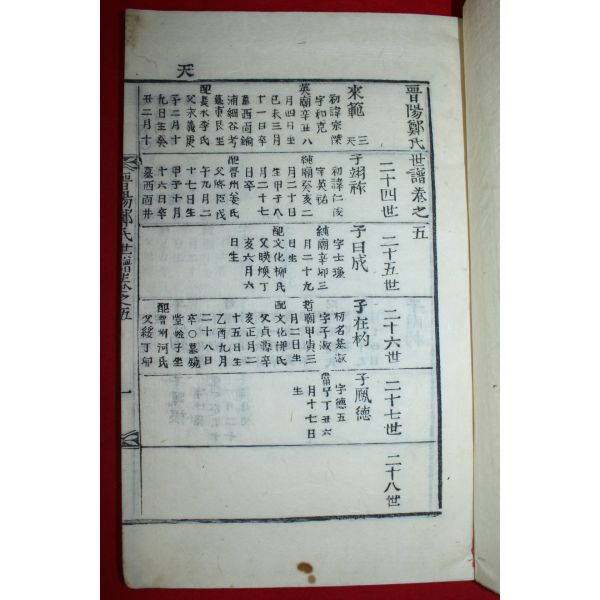 晋陽鄭氏世譜卷之五
二十四世
二十五世
二十六世
二十七世
二十八世
天
來範
三
天
初諱宗傑
字和克
英廟辛丑八
月四日生
己未三月
十一日卒
墓西面
配長水李氏
父永義庚
子二月十
九日生癸
丑二月十
子翊祚
初諱仁
字英祐
純廟癸亥二
月二十日
生甲子八
月二十七
日卒
配晉州姜氏
父 臣戊
午九月二
十七日生
甲子十月
十六日卒
墓西面井
子日成
字士
純廟辛卯三
月二十九
日生
配文化柳氏
父 煥丁
亥六月六
日生
子在杓
初名基
字子
哲廟甲寅三
月二日生
配文化柳氏
父貞 辛
亥正月二
十五日生
乙酉九月
二十八日
卒〇墓鏡
堂 子坐
配晉州河氏
父 丁卯
子鳳德
字德五
當宁丁丑六
月十七日
生
晋陽鄭氏世譜卷之五
一